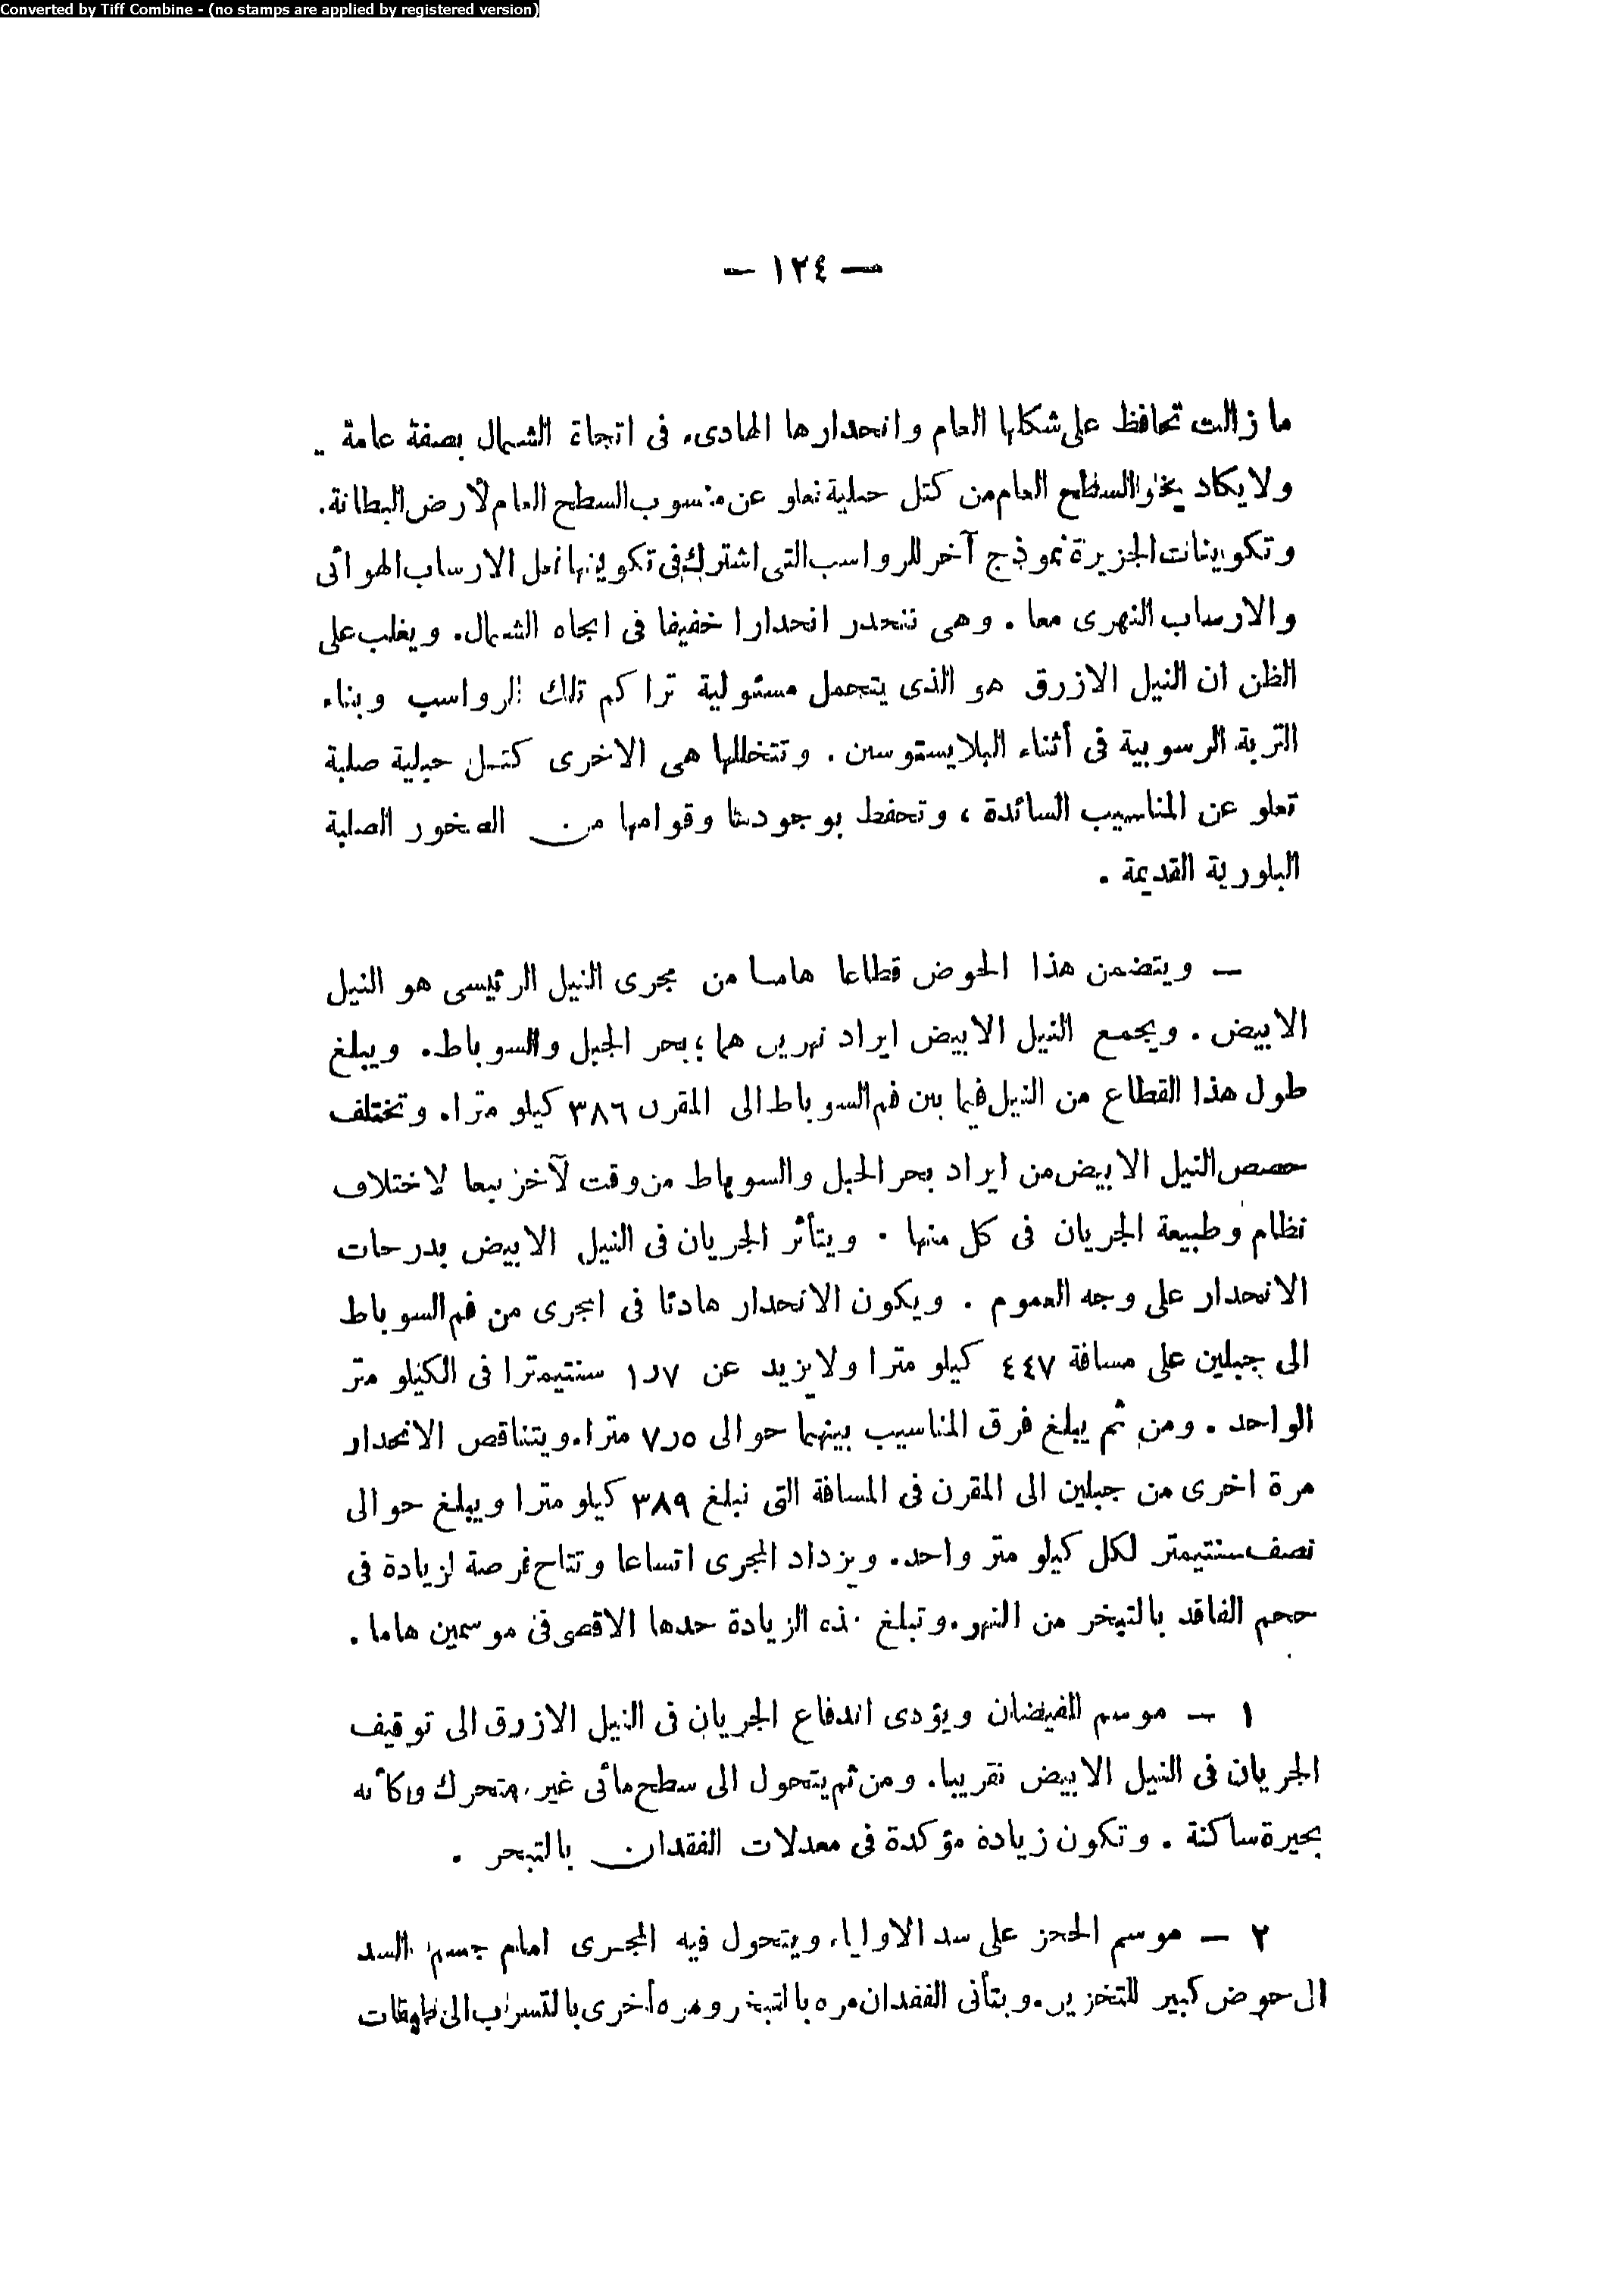 Converted by Tiff Combine - (no stamps are applied by registered version)
— ١٢٤ —
ما زالت تحافظ على شكلها العام وانحدارها الهادىء فى اتجاة الشمال بصفة عامة .
ولا يكاد يخلو السطح العام من كتل جبلية تعلو عن منسوب السطح العام لأرض البطانة .
وتكوينات الجزيرة نموذج آخر للرواسب التى اشترك فى تكوينها فعل الارساب الهوائى
والارساب النهرى معا . وهى تنحدر انحدارا خفيفا فى اتجاه الشمال . ويغلب على
الظن ان النيل الازرق هو الذى يتحمل مسئولية تراكم تلك الرواسب وبناء
التربة الرسوبية فى أثناء البلايستوسين . وتتخللها هى الاخرى كتل جبلية صلبة
تعلو عن المناسيب السائدة ، وتحفظ بوجودها وقوامها من الصخور الصلبة
البلورية القديمة .
— ويتضمن هذا الحوض قطاعا هاما من مجرى النيل الرئيسى هو النيل
الابيض . ويجمع النيل الابيض ايراد نهرين هما ؛ بحر الجبل والسوباط . ويبلغ
طول هذا القطاع من النيل فيما بين فم السوباط الى المقرن ٣٨٦ كيلو مترا . وتختلف
حصص النيل الابيض من ايراد بحر الجبل والسوباط من وقت لآخر تبعا لاختلاف
نظام وطبيعة الجريان فى كل منها . ويتأثر الجريان فى النيل الابيض بدرجات
الانحدار على وجه العموم . ويكون الانحدار هادئا فى المجرى من فم السوباط
الى جبلين على مسافة ٤٤٧ كيلو مترا ولا يزيد عن ١٫٧ سنتيمترا فى الكيلو متر
الواحد . ومن ثم يبلغ فرق المناسيب بينهما حوالى ٧٫٥ مترا . ويتناقص الانحدار
مرة اخرى من جبلين الى المقرن فى المسافة التى تبلغ ٣٨٩ كيلو مترا ويبلغ حوالى
نصف سنتيمتر لكل كيلو متر واحد . ويزداد المجرى اتساعا وتتاح فرصة لزيادة فى
حجم الفاقد بالتبخر من النهر . وتبلغ هذه الزيادة حدها الاقصى فى موسمين هاما .
١ — موسم الفيضان ويؤدى اندفاع الجريان فى النيل الازرق الى توقيف
الجريان فى النيل الابيض تقريبا . ومن ثم يتحول الى سطح مائى غير متحرك وكأنه
بحيرة ساكنة . وتكون زيادة مؤكدة فى معدلات الفقدان بالتبخر .
٢ — موسم الحجز على سد الاولياء ويتحول فيه المجرى امام جسم السد
الى حوض كبير للتخزين . ويتأتى الفقدان مره بالتبخر ومره أخرى بالتسرب الى طبقات